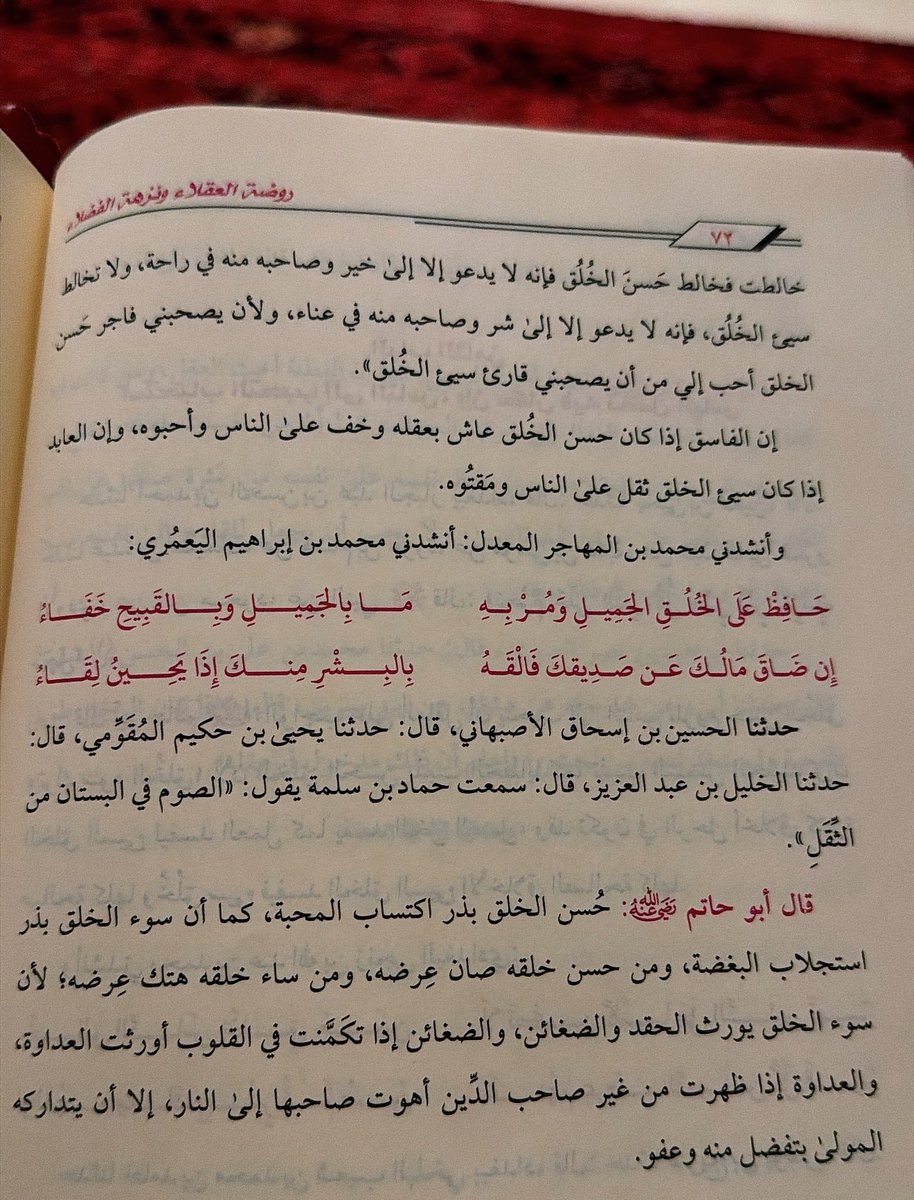 روضة العقلاء ونزهة الفضلاء
٧٢
خالطت فخالط حَسنَ الخُلُق فإنه لا يدعو إلا إلىٰ خير وصاحبه منه في راحة، ولا تخالط
سيئ الخُلُق، فإنه لا يدعو إلا إلىٰ شر وصاحبه منه في عناء، ولأن يصحبني فاجر حَسن
الخلق أحب إلي من أن يصحبني قارئ سيئ الخُلق».
إن الفاسق إذا كان حسن الخُلق عاش بعقله وخف علىٰ الناس وأحبوه، وإن العابد
إذا كان سيئ الخلق ثقل علىٰ الناس ومَقتُوه.
وأنشدني محمد بن المهاجر المعدل: أنشدني محمد بن إبراهيم اليَعمُري:
حَافِظْ عَلَى الخُلُقِ الجَمِيلِ وَمُرْ بِهِ مَا بِالجَمِيلِ وَبِالقَبِيحِ خَفَاءُ
إِن ضَاقَ مَالُكَ عَن صَدِيقِكَ فَالْقَهُ بِالبِشْرِ مِنكَ إِذَا يَحِينُ لِقَاءُ
حدثنا الحسين بن إسحاق الأصبهاني، قال: حدثنا يحيىٰ بن حكيم المُقَوِّمي، قال:
حدثنا الخليل بن عبد العزيز، قال: سمعت حماد بن سلمة يقول: «الصوم في البستان من
الثِّقَلِ».
قال أبو حاتم رَضِيَ اللَّهُ عَنْهُ: حُسن الخلق بذر اكتساب المحبة، كما أن سوء الخلق بذر
استجلاب البغضة، ومن حسن خلقه صان عِرضه، ومن ساء خلقه هتك عِرضه؛ لأن
سوء الخلق يورث الحقد والضغائن، والضغائن إذا تكَمَّنت في القلوب أورثت العداوة،
والعداوة إذا ظهرت من غير صاحب الدِّين أهوت صاحبها إلىٰ النار، إلا أن يتداركه
المولىٰ بتفضل منه وعفو.